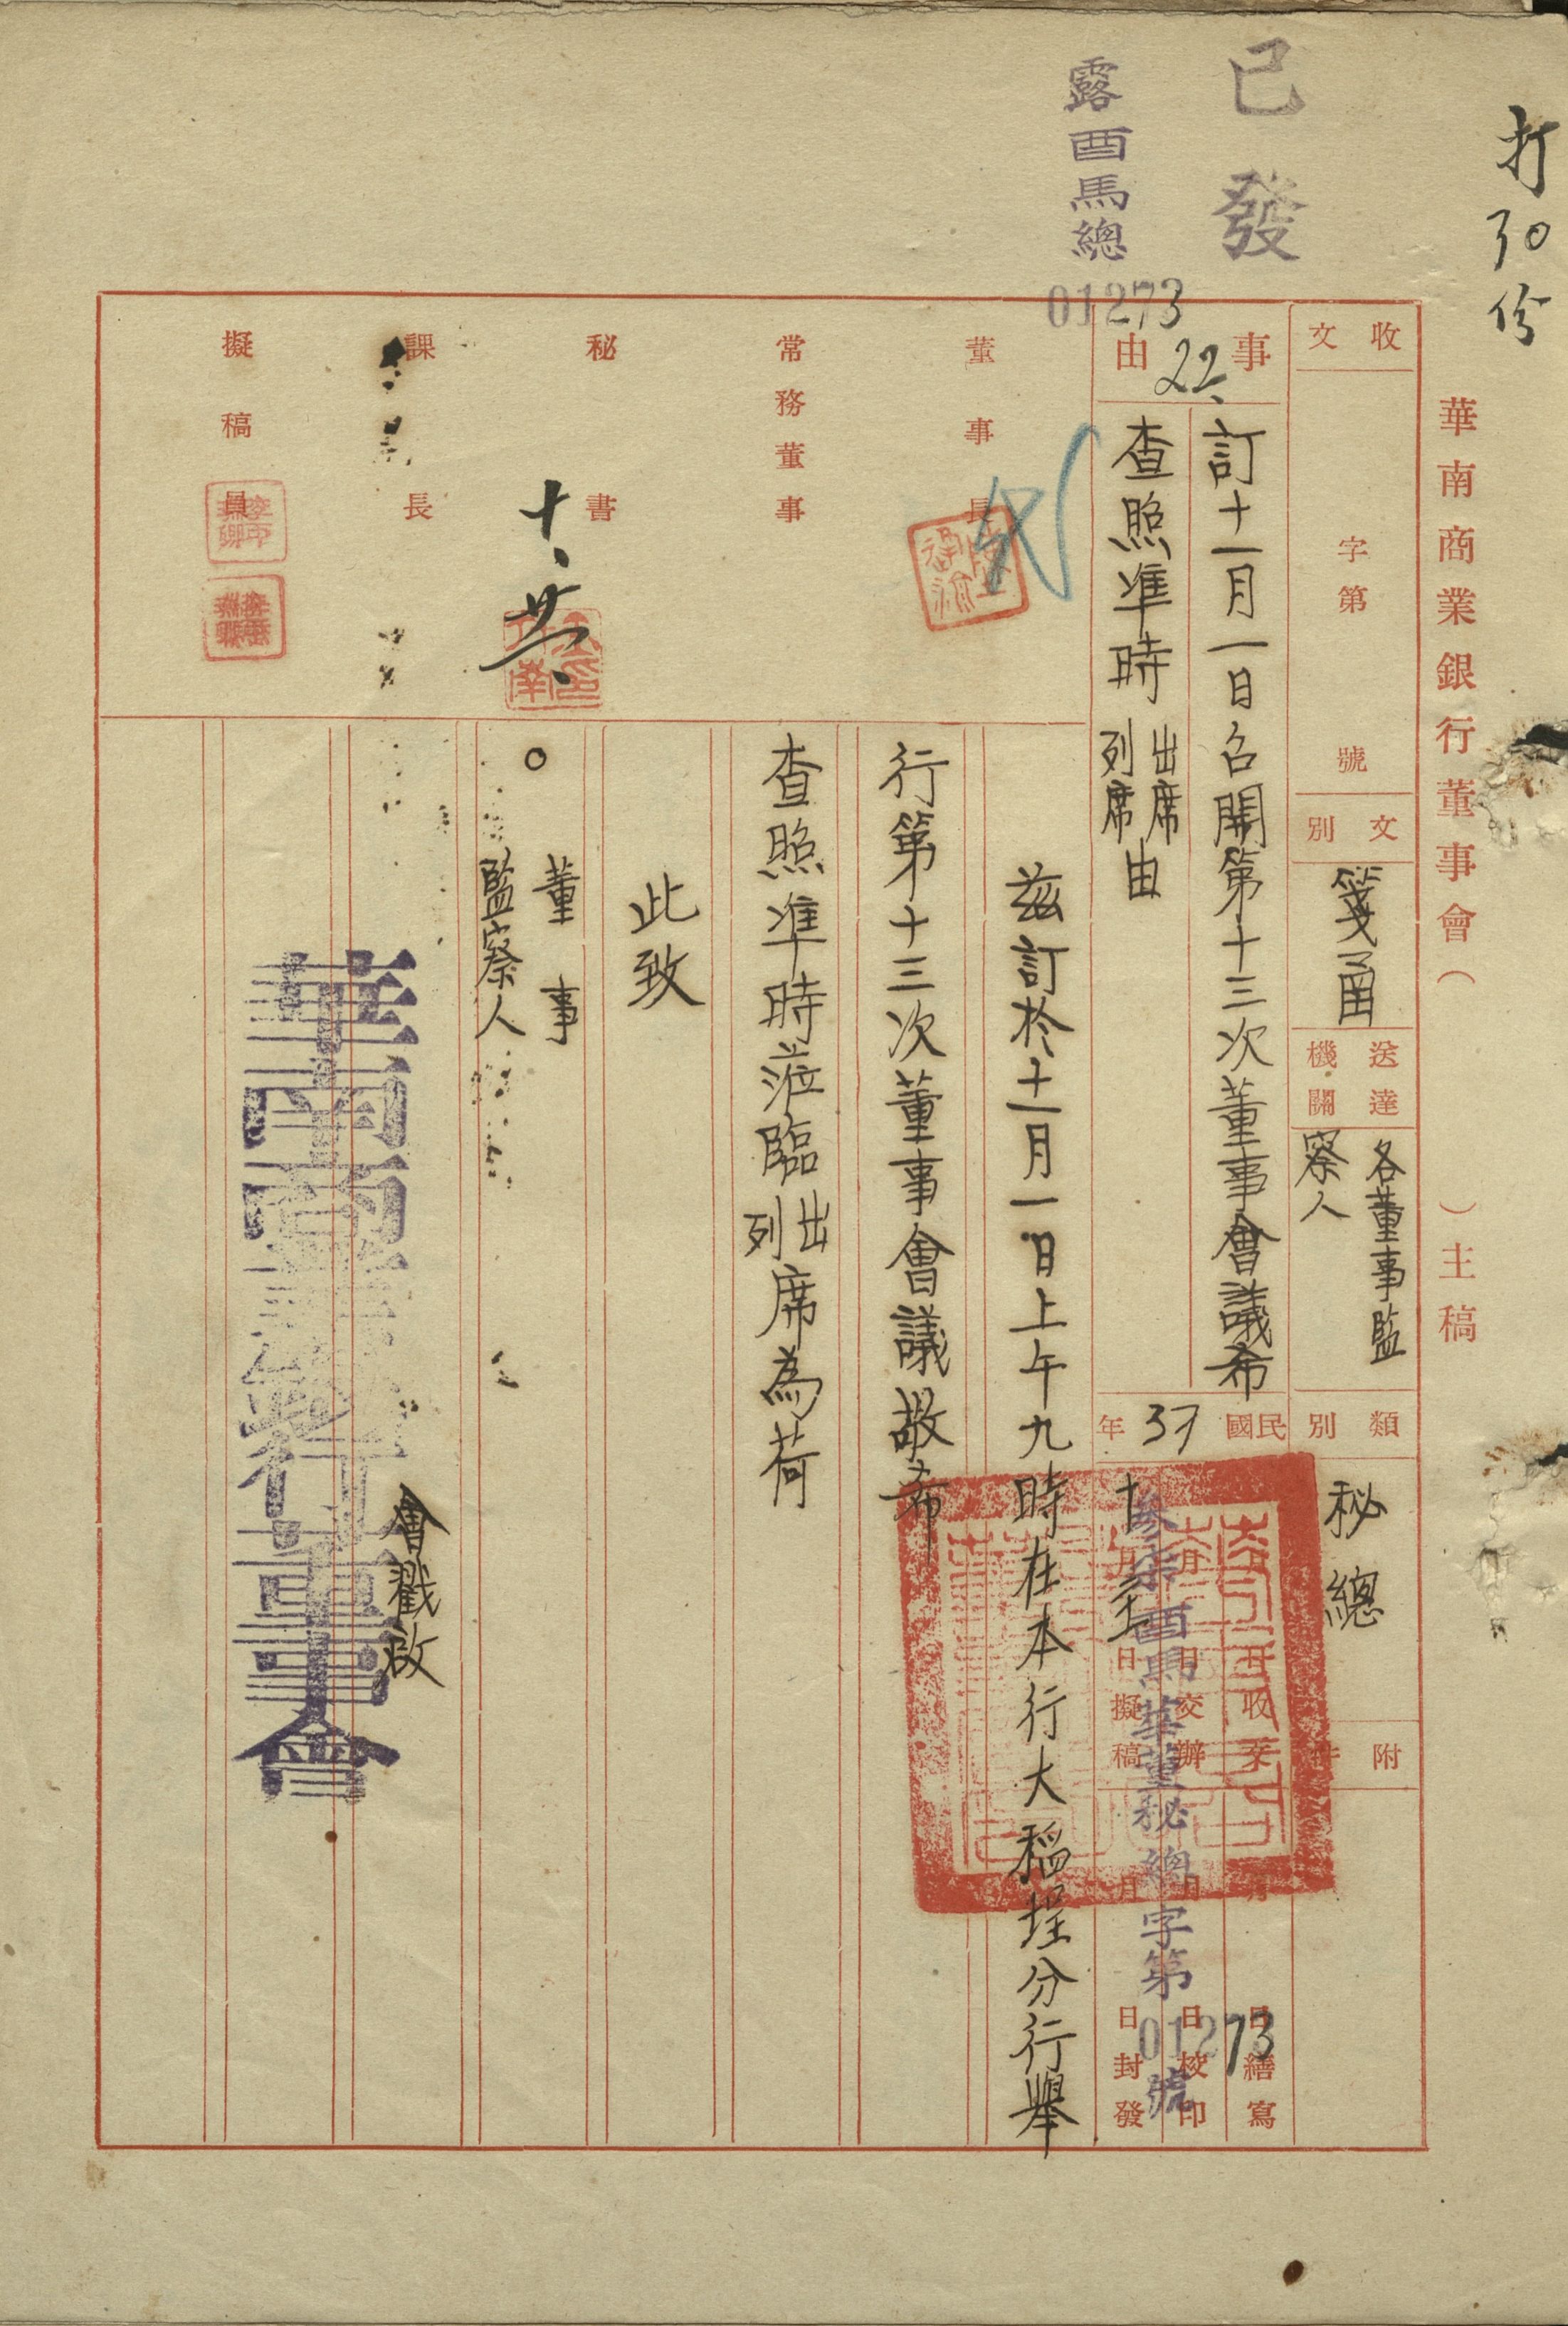 打30份
已發
露酉馬總
01273
華南商業銀行董事會（　　）主稿
收文　字第　號
文別　箋函
送達機關　各董事監察人
類別　秘總
附件
事由　訂十一月一日召開第十三次董事會議希
查照準時出席列席由
22
民國37年
月　日收文
月　日交辦
十月　日擬稿
月　日繕寫
月　日校印
月　日封發
酉馬華董秘總字第01273號
董事長
常務董事
秘書
課長
擬稿員
茲訂於十一月一日上午九時在本行大稻埕分行舉
行第十三次董事會議敬希
查照準時蒞臨出列席為荷
此致
董事
監察人
會戳啟
華南商業銀行董事會